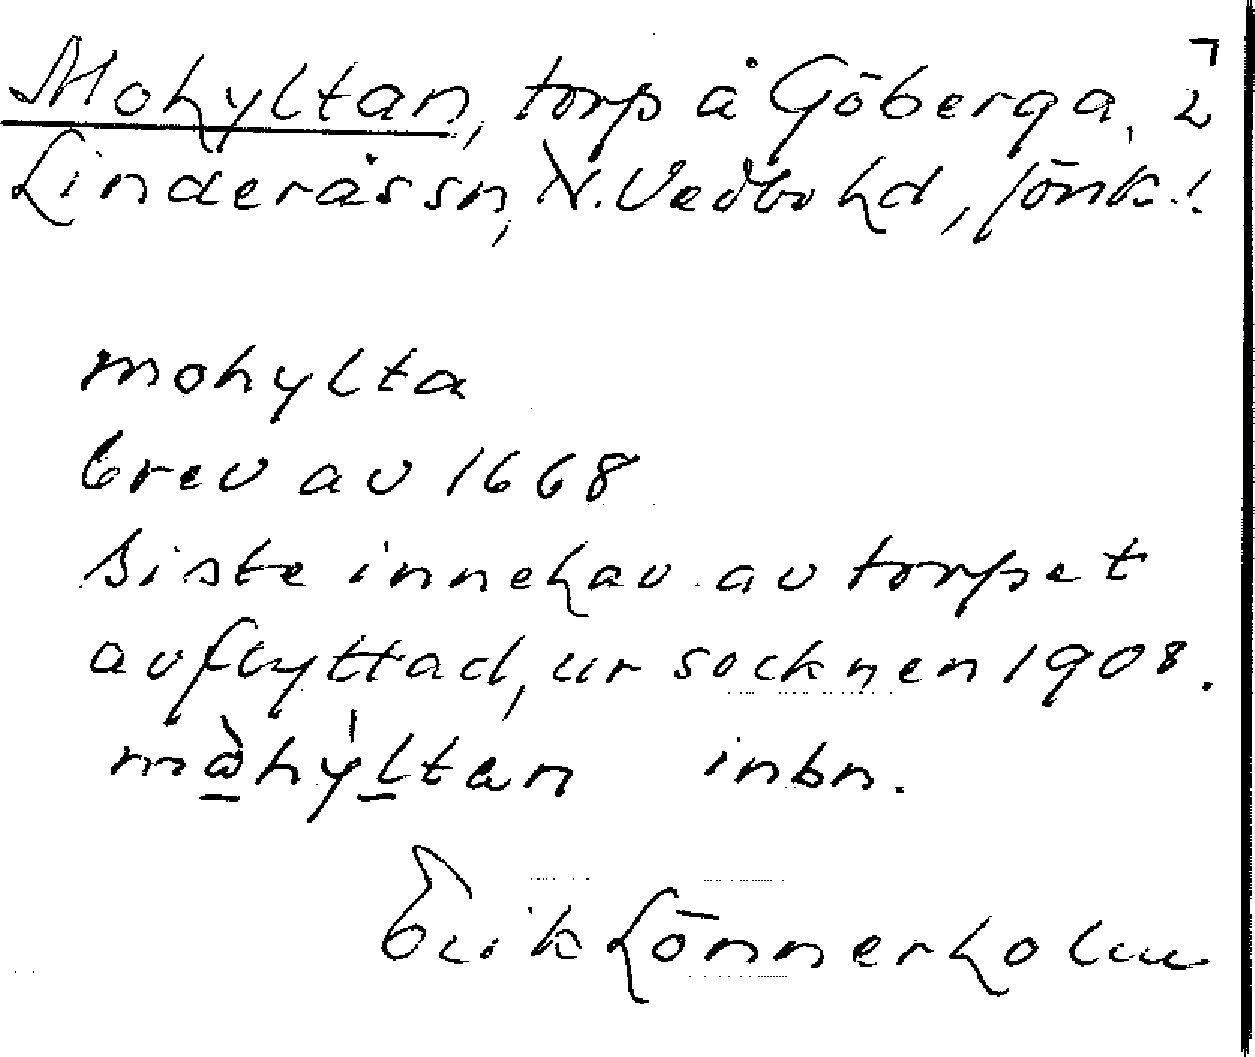 Mohyltan, torp å Göberga, 2
Linderås sn, N. Vedbo hd, Jönk. l
mohylta
brev av 1668
Siste innehav. av torpet
avflyttad, ur socknen 1908.
måhyltan inbn.
Erik Lönnerholm